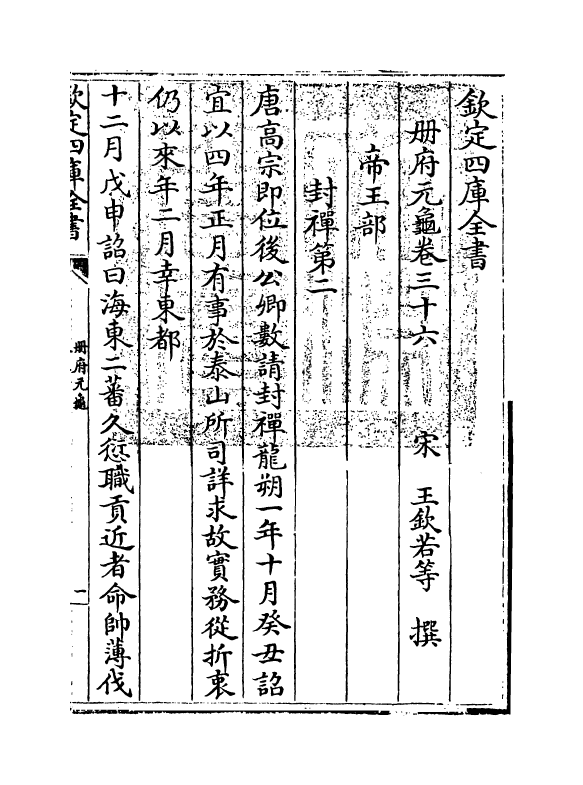 欽定四庫全書
册府元龜卷三十六 宋 王欽若等 撰
帝王部
封禪第二
唐高宗即位後公卿數請封禪龍朔一年十月癸丑詔
宜以四年正月有事於泰山所司詳求故實務從折衷
仍以來年二月幸東都
十二月戊申詔曰海東二蕃久愆職貢近者命帥薄伐
欽定四庫全書
册府元龜